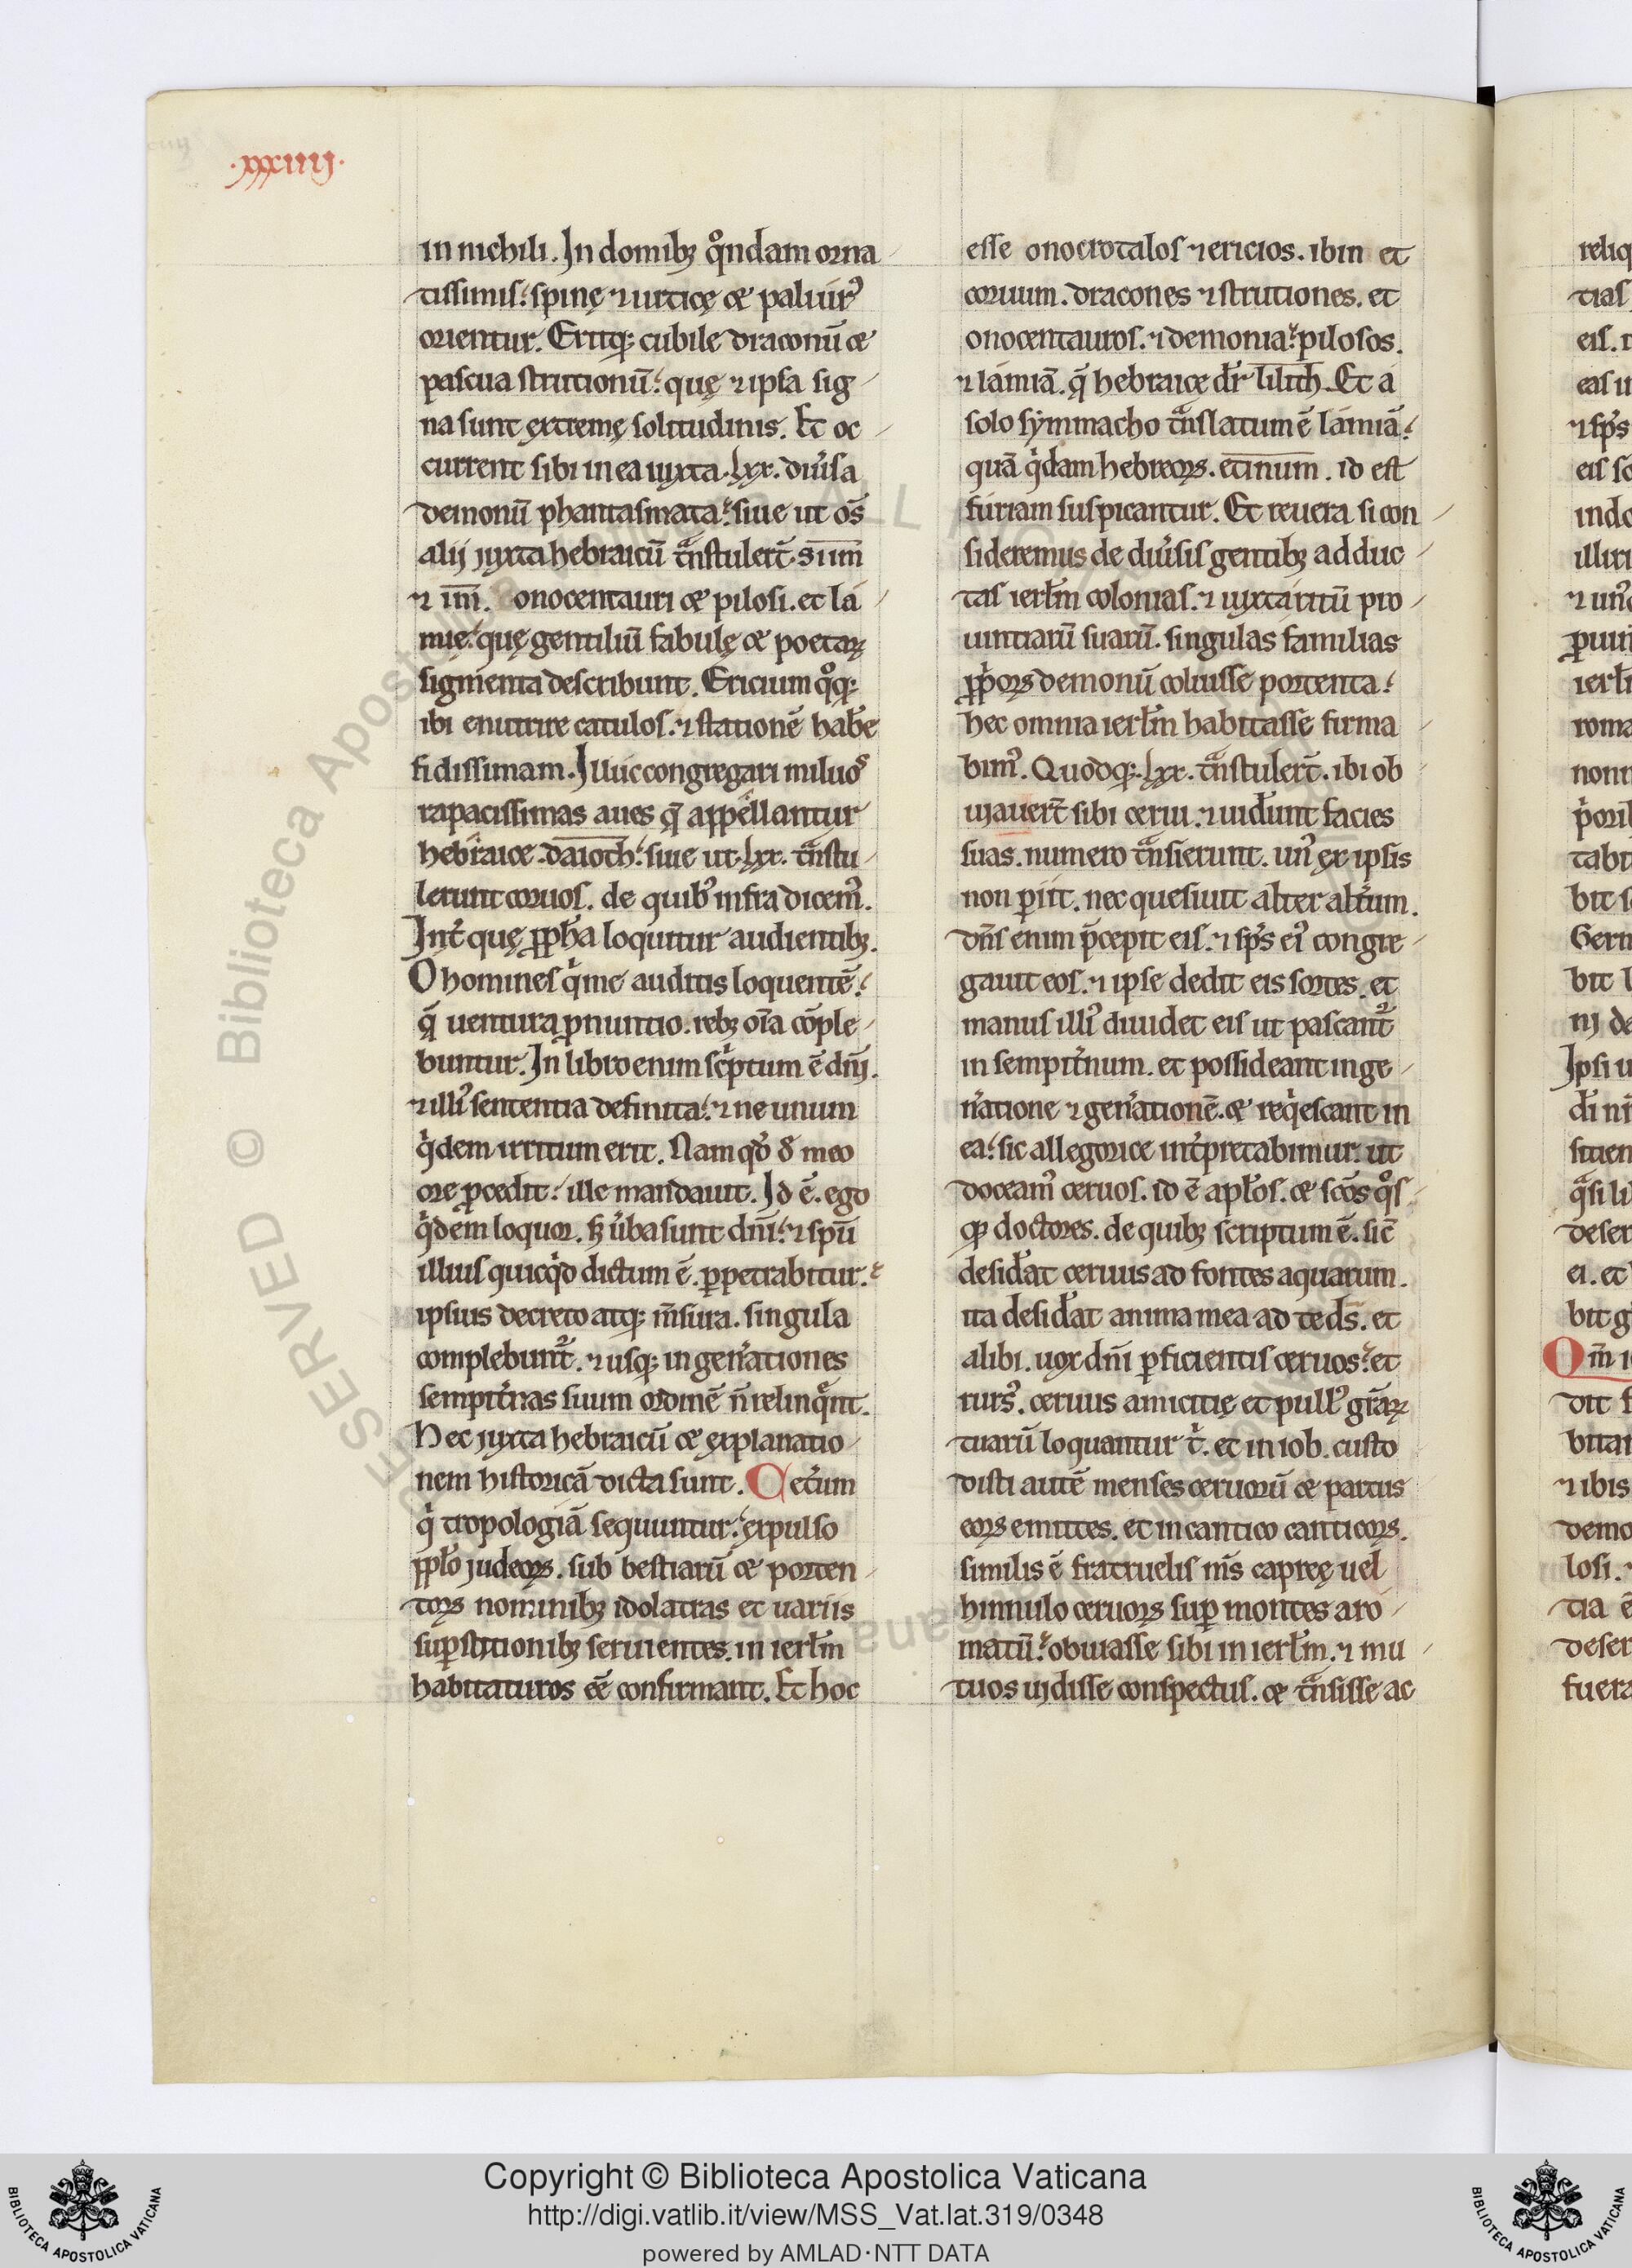 .xxxiiij.
in nichili. In domibꝫ qͦndam orna
tissimis: spinę ⁊ urticę & paliurꝰ
orientur. Eritqꝫ cubile draconū &
pascua strutionū: quę ⁊ ipsa sig
na sunt extremę solitudinis. Et oc
current sibi in ea iuxta .lxx. diu̓sa
demonū phantasmata: siue ut om̄s
alij iuxta hebraicū tᷓnstulert̄. siim
⁊ iim̄. onocentauri & pilosi. et la
mię: quę gentiliū fabulę & poetaꝝ
figmenta describunt. Ericium qͦqꝫ
ibi enutrire catulos. ⁊ stationē hab̄e
fidissimam. Illuc congregari miluos
rapacissimas aues q̄ appellantur
hebraice .daioth: siue ut .lxx. tᷓnstu
lerunt coruos. de quibꝰ infra dicemꝰ.
Int̓ quę ꝓph̄a loquitur audientibꝫ.
O homines qͥ me auditis loquentē:
q̄ uentura ꝓnuntio. rebꝫ oīa cōple
buntur. In libro enim scͥptum ē dn̄i.
⁊ illiꝰ sententia definita: ⁊ ne unum
qͥdem irritum erit. Nam qd̓ d̓ meo
ore ꝓcedit: ille mandauit. Id ē. ego
qͥdem loquor. sꝫ u̓ba sunt dn̄i: ⁊ spū
illius quicqͥd dictum ē. ꝑpetrabitur: ⁊
ipsius decreto atqꝫ m̄sura. singula
complebunt᷑. ⁊ usqꝫ in gen̓ationes
sempit̓nas suum ordinē n̄ relinqᷓnt.
Hec iuxta hebraicū & explanatio
nem historicā dicta sunt. Cet̓um
qͥ tropologiā sequuntur: expulso
pp̄lo iudeoꝝ. sub bestiarū & porten
toꝝ nominibꝫ idolatras et uariis
suꝑstitionibꝫ seruientes. in ierl̄m
habitaturos eē confirmant. Et hoc
esse onocrotalos ⁊ ericios. ibin et
coruum. dracones ⁊ strutiones. et
onocentauros. ⁊ demonia: pilosos.
⁊ lamiā. q̄ hebraice dr̄ lilith. Et a
solo symmacho tᷓnslatum ē lamiā:
quā qͥdam hebreoꝝ. etinum. id est
furiam suspicantur. Et reuera si con
sideremus de diu̓sis gentibꝫ adduc
tas ierl̄m colonias. ⁊ iuxta ritū pro
uintiarū suarū. singulas familias
ꝓpͥoꝝ demonū coluisse portenta:
hec omnia ierl̄m habitasse firma
bimꝰ. Quodqꝫ .lxx. tᷓnstulert̄. ibi ob
uiauert̄ sibi cerui. ⁊ uid̓unt facies
suas. numero tᷓnsierunt. unꝰ ex ipsis
non ꝑiit. nec quesiuit alter alt̓um.
dn̄s enim p̄cepit eis. ⁊ sp̄s eiꝰ congre
gauit eos. ⁊ ipse dedit eis sortes. et
manus illiꝰ diuidet eis ut pascant᷑
in sempit̓num. et possideant in ge
n̓atione ⁊ gen̓ationē. & reqͥescant in
ea: sic allegorice int̓pretabimur. ut
doceamꝰ ceruos. id ē apl̄os. & scōs qͦs
qꝫ doctores. de quibꝫ scriptum ē. sic̄
desid̓at ceruus ad fontes aquarum.
ita desid̓at anima mea ad te ds̄. et
alibi. uox dn̄i ꝑficientis ceruos: et
rursꝰ. ceruus amicitię et pullꝰ grāꝝ
tuarū loquantur t̓. et in iob. custo
disti autē menses ceruorū & partus
eoꝝ emittes. et in cantico canticoꝝ.
similis ē fratruelis ms̄ capreę uel
hinnulo ceruoꝝ suꝑ montes aro
matū: obuiasse sibi in ierl̄m. ⁊ mu
tuos uidisse conspectus. & tᷓnsisse ac
Copyright © Biblioteca Apostolica Vaticana
http://digi.vatlib.it/view/MSS_Vat.lat.319/0348
powered by AMLAD·NTT DATA
BIBLIOTECA APOSTOLICA VATICANA
BIBLIOTECA APOSTOLICA VATICANA